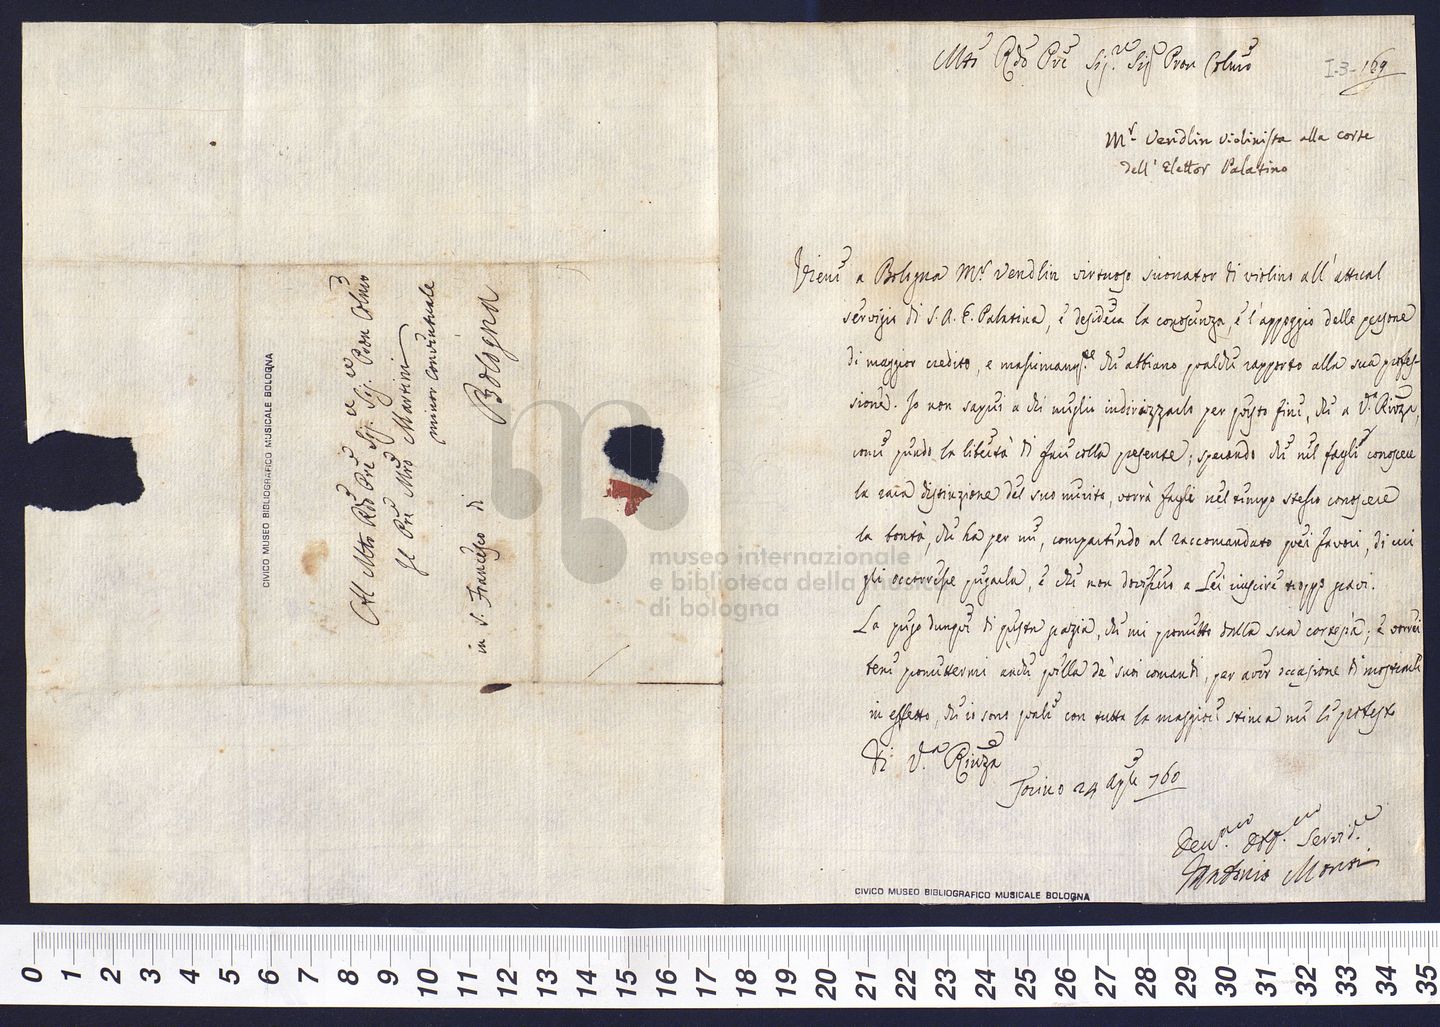 Mto Rdo Pre Sig.r Sig Pron Colmo
I-3-169
Mr Vendlin violinista alla corte
dell' Elettor Palatino
Viene a Bologna Mr. Vendlin virtuoso suonator di violino all' attual
servizio di S. A. E. Palatina, e desidera la conoscenza, e l'appoggio delle persone
di maggior credito, e massimam.te che abbiano qualche rapporto alla sua profes-
sione. Io non saprei a chi meglio indirizzarlo per questo fine, che a V.a Riverza,
come prendo la libertà di fare colla presente; sperando che nel fargli conoscere
la rara distinzione del suo merito, vorrà fargli nel tempo stesso conoscere
la bontà, che ha per me, compartendo al raccomandato quei favori, di cui
gli occorresse pregarla, e che non dovessero a Lei riuscire troppo gravi.
La prego dunque di questa grazia, che mi prometto dalla sua cortesia; e vorrei
bene promettermi anche quella de' suoi comandi, per aver occasione di mostrarle
in effetto, che io sono quale con tutta la maggior stima me le protesto
Di V.a Riverza
Torino 24 Aple 760
Dev.mo Obb.mo Servid.e
Antonio Montri
CIVICO MUSEO BIBLIOGRAFICO MUSICALE BOLOGNA
Al Mto Rdo Pre Sig.re Sig.re Pron Colmo
Il Pre Mro Martini
minor Conventuale
in S. Francesco di
Bologna
CIVICO MUSEO BIBLIOGRAFICO MUSICALE BOLOGNA
museo internazionale
e biblioteca della musica
di bologna
0 1 2 3 4 5 6 7 8 9 10 11 12 13 14 15 16 17 18 19 20 21 22 23 24 25 26 27 28 29 30 31 32 33 34 35